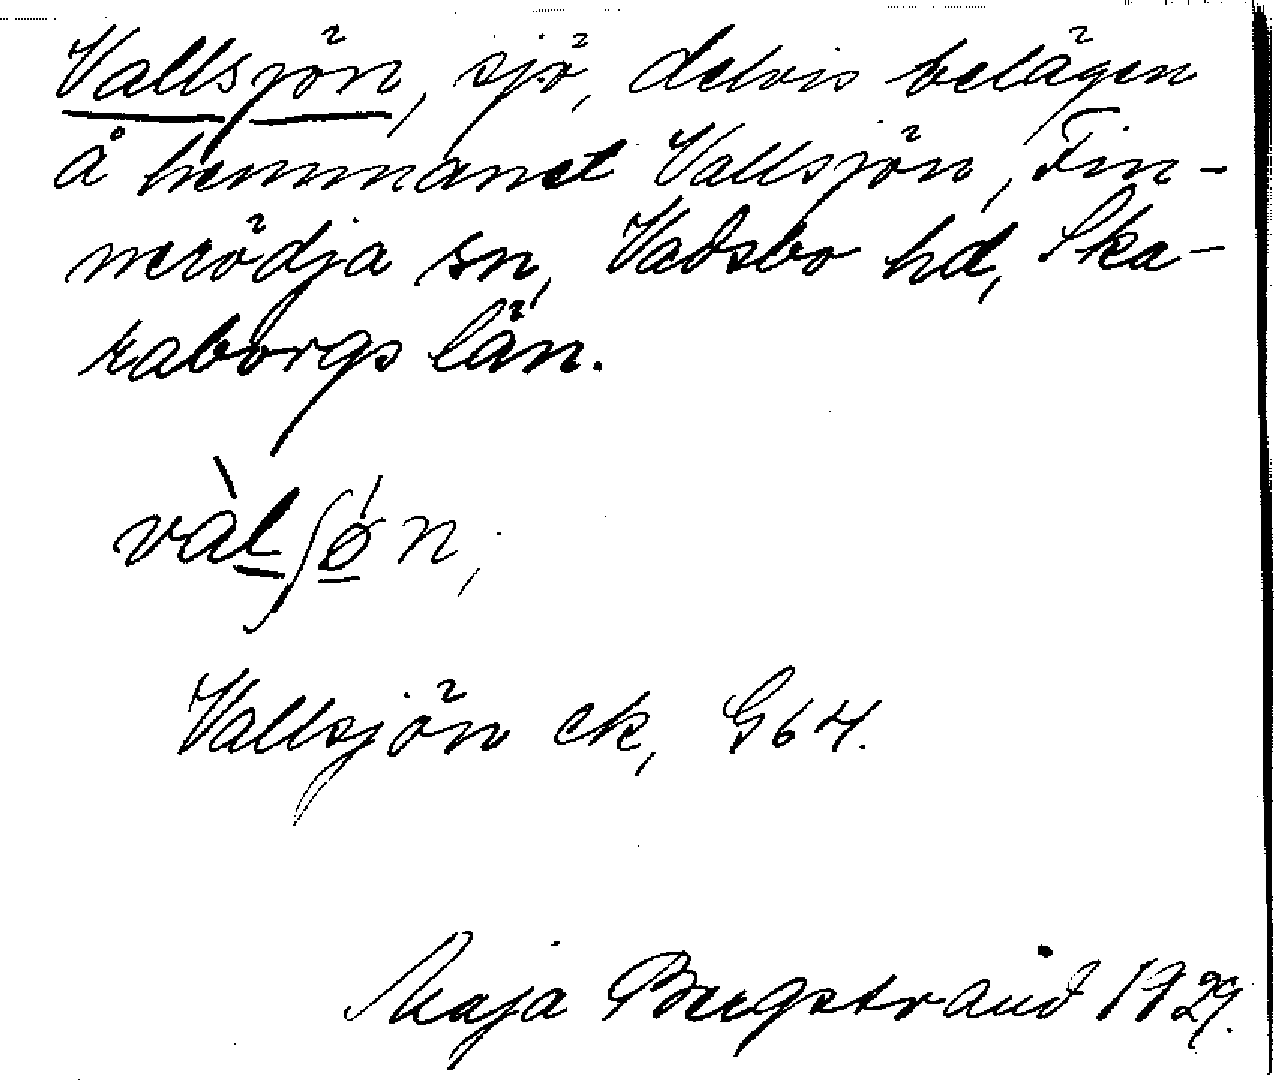 Vallsjön, sjö, delvis belägen
å hemmanet Vallsjön, Fin-
nerödja sn, Vadsbo hd, Ska-
raborgs län.
vàlʃǿn,
Vallsjön ek, G64.
Maja Bergstrand 1929.